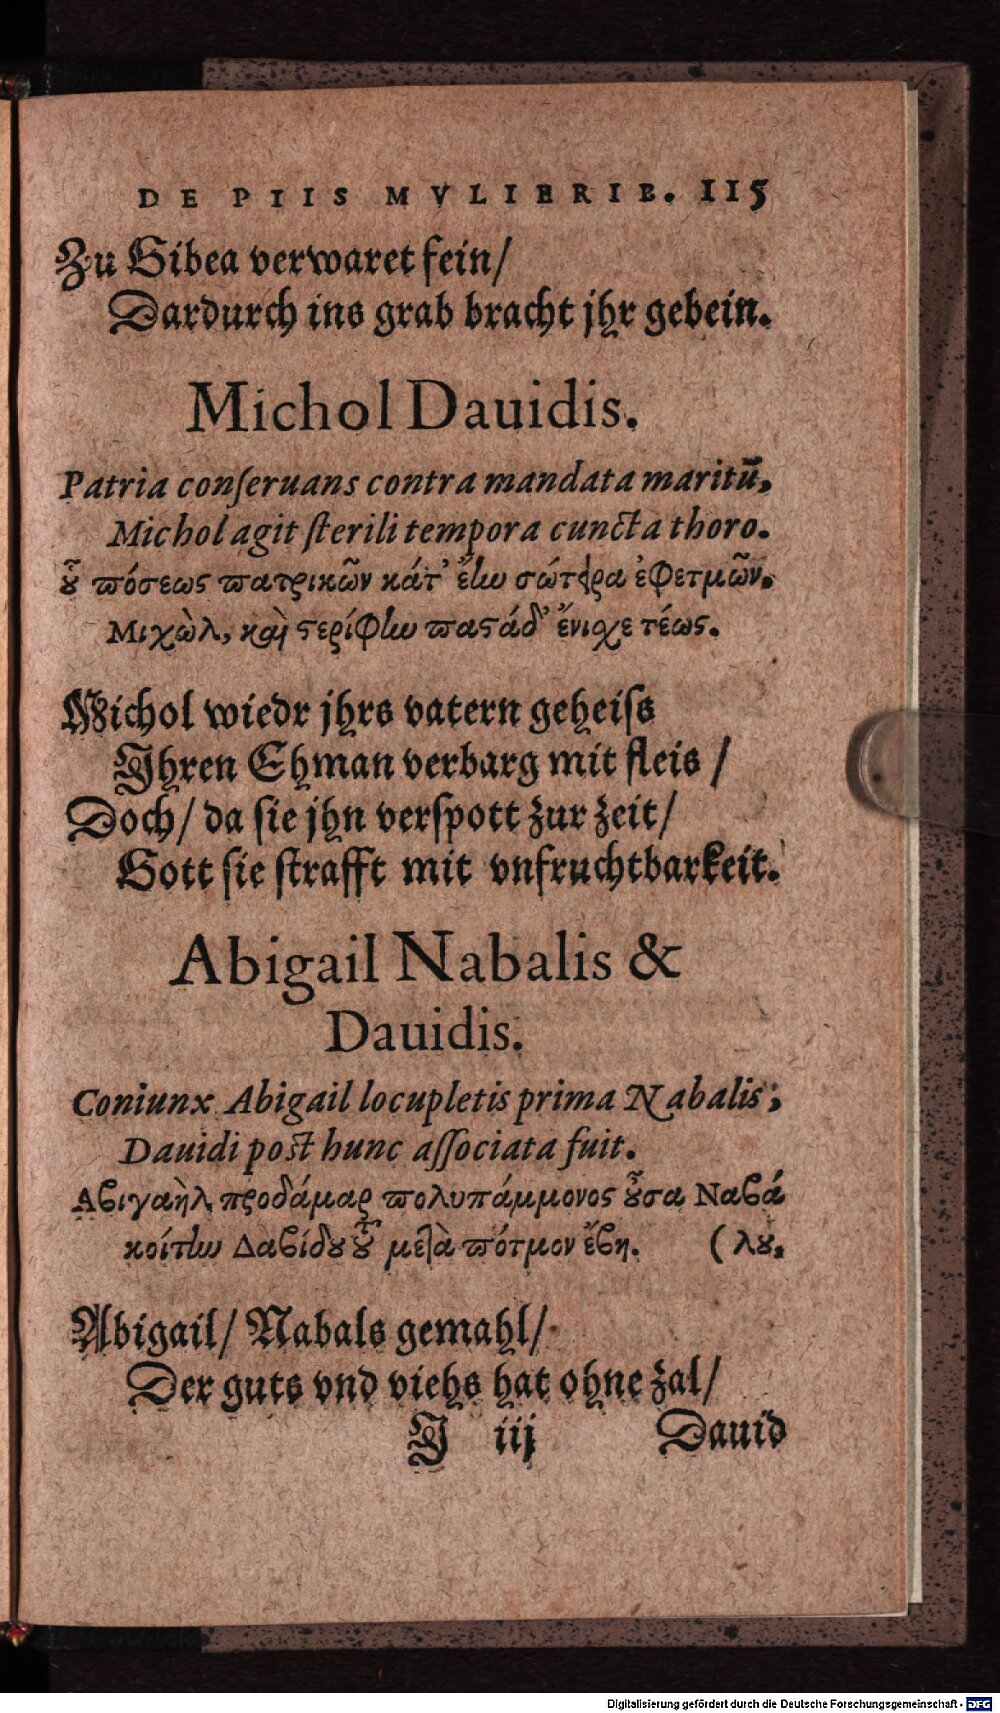 DE PIIS MVLIERIB. 115
Zu Gibea verwaret fein/
Dardurch ins grab bracht jhr gebein.
Michol Dauidis.
Patria conſeruans contra mandata maritū,
Michol agit ſterili tempora cuncta thoro.
ȣ̃ πόσεως πατρικῶν κάτ' ἔην σώτειρα ἐφετμῶν.
Μιχὼλ, καὶ ϛερίφην παϛάδ' ἔνιχε τέως.
Michol wiedr jhrs vatern geheiſs
Ihren Ehman verbarg mit fleis /
Doch/ da ſie jhn verſpott zur zeit/
Gott ſie ſtrafft mit vnfruchtbarkeit.
Abigail Nabalis &
Dauidis.
Coniunx Abigail locupletis prima Nabalis,
Dauidi poſt hunc aſſociata fuit.
Αβιγαὴλ προδάμαρ πολυπάμμονος ȣ̃σα Ναβά
κοίτην Δαβίδου τȣ̃ μετὰ πότμον ἔβη. (λȣ,
Abigail/ Nabals gemahl/
Der guts vnd viehs hat ohne zal/
Y iij Dauid
Digitalisierung gefördert durch die Deutsche Forschungsgemeinschaft - DFG